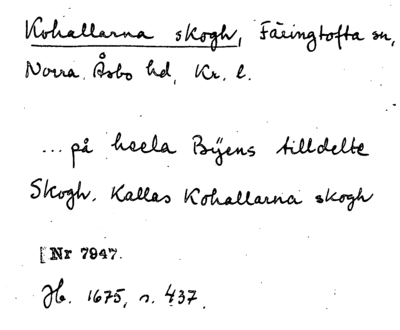 Kohallarna skogh, Färingtofta sn,
Norra Åsbo hd, Kr. l.
... på heela Bÿens tilldelte
Skogh. Kallas Kohallarna skogh
[Nr 7947.
Jb. 1675, s. 437.